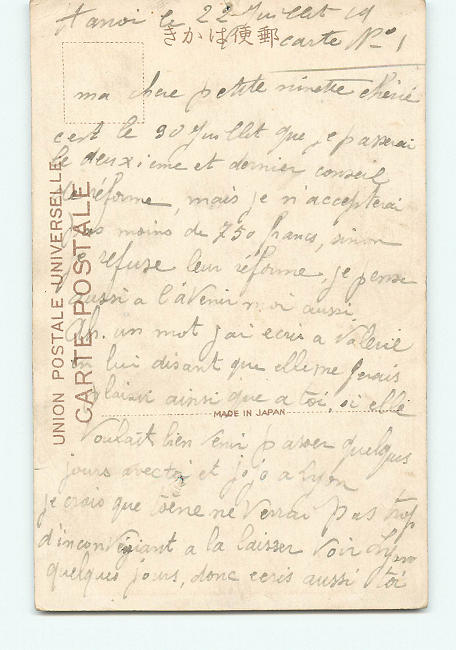 Hanoi le 22 Juillet 19
きがは便郵
carte No 1
ma chere petite ninette chérie
c'est le 30 Juillet que je passerai
le deuxieme et dernier conseil
de réforme, mais je n'accepterai
pas moins de 750 francs, sinon
je refuse leur réforme. je pense
aussi a l'avenir moi aussi
Ah. un mot j'ai ecris a Valerie
en lui disant que elle me ferais
plaisir ainsi que a toi, si elle
Voulait bien venir passer quelques
jours avec toi et jojo a Lyon
je crois que ne Verrai pas trop
d'inconvegiant a la laisser voir Lyon
quelques jours, donc ecris aussi toi
UNION POSTALE UNIVERSELLE
CARTE POSTALE
MADE IN JAPAN